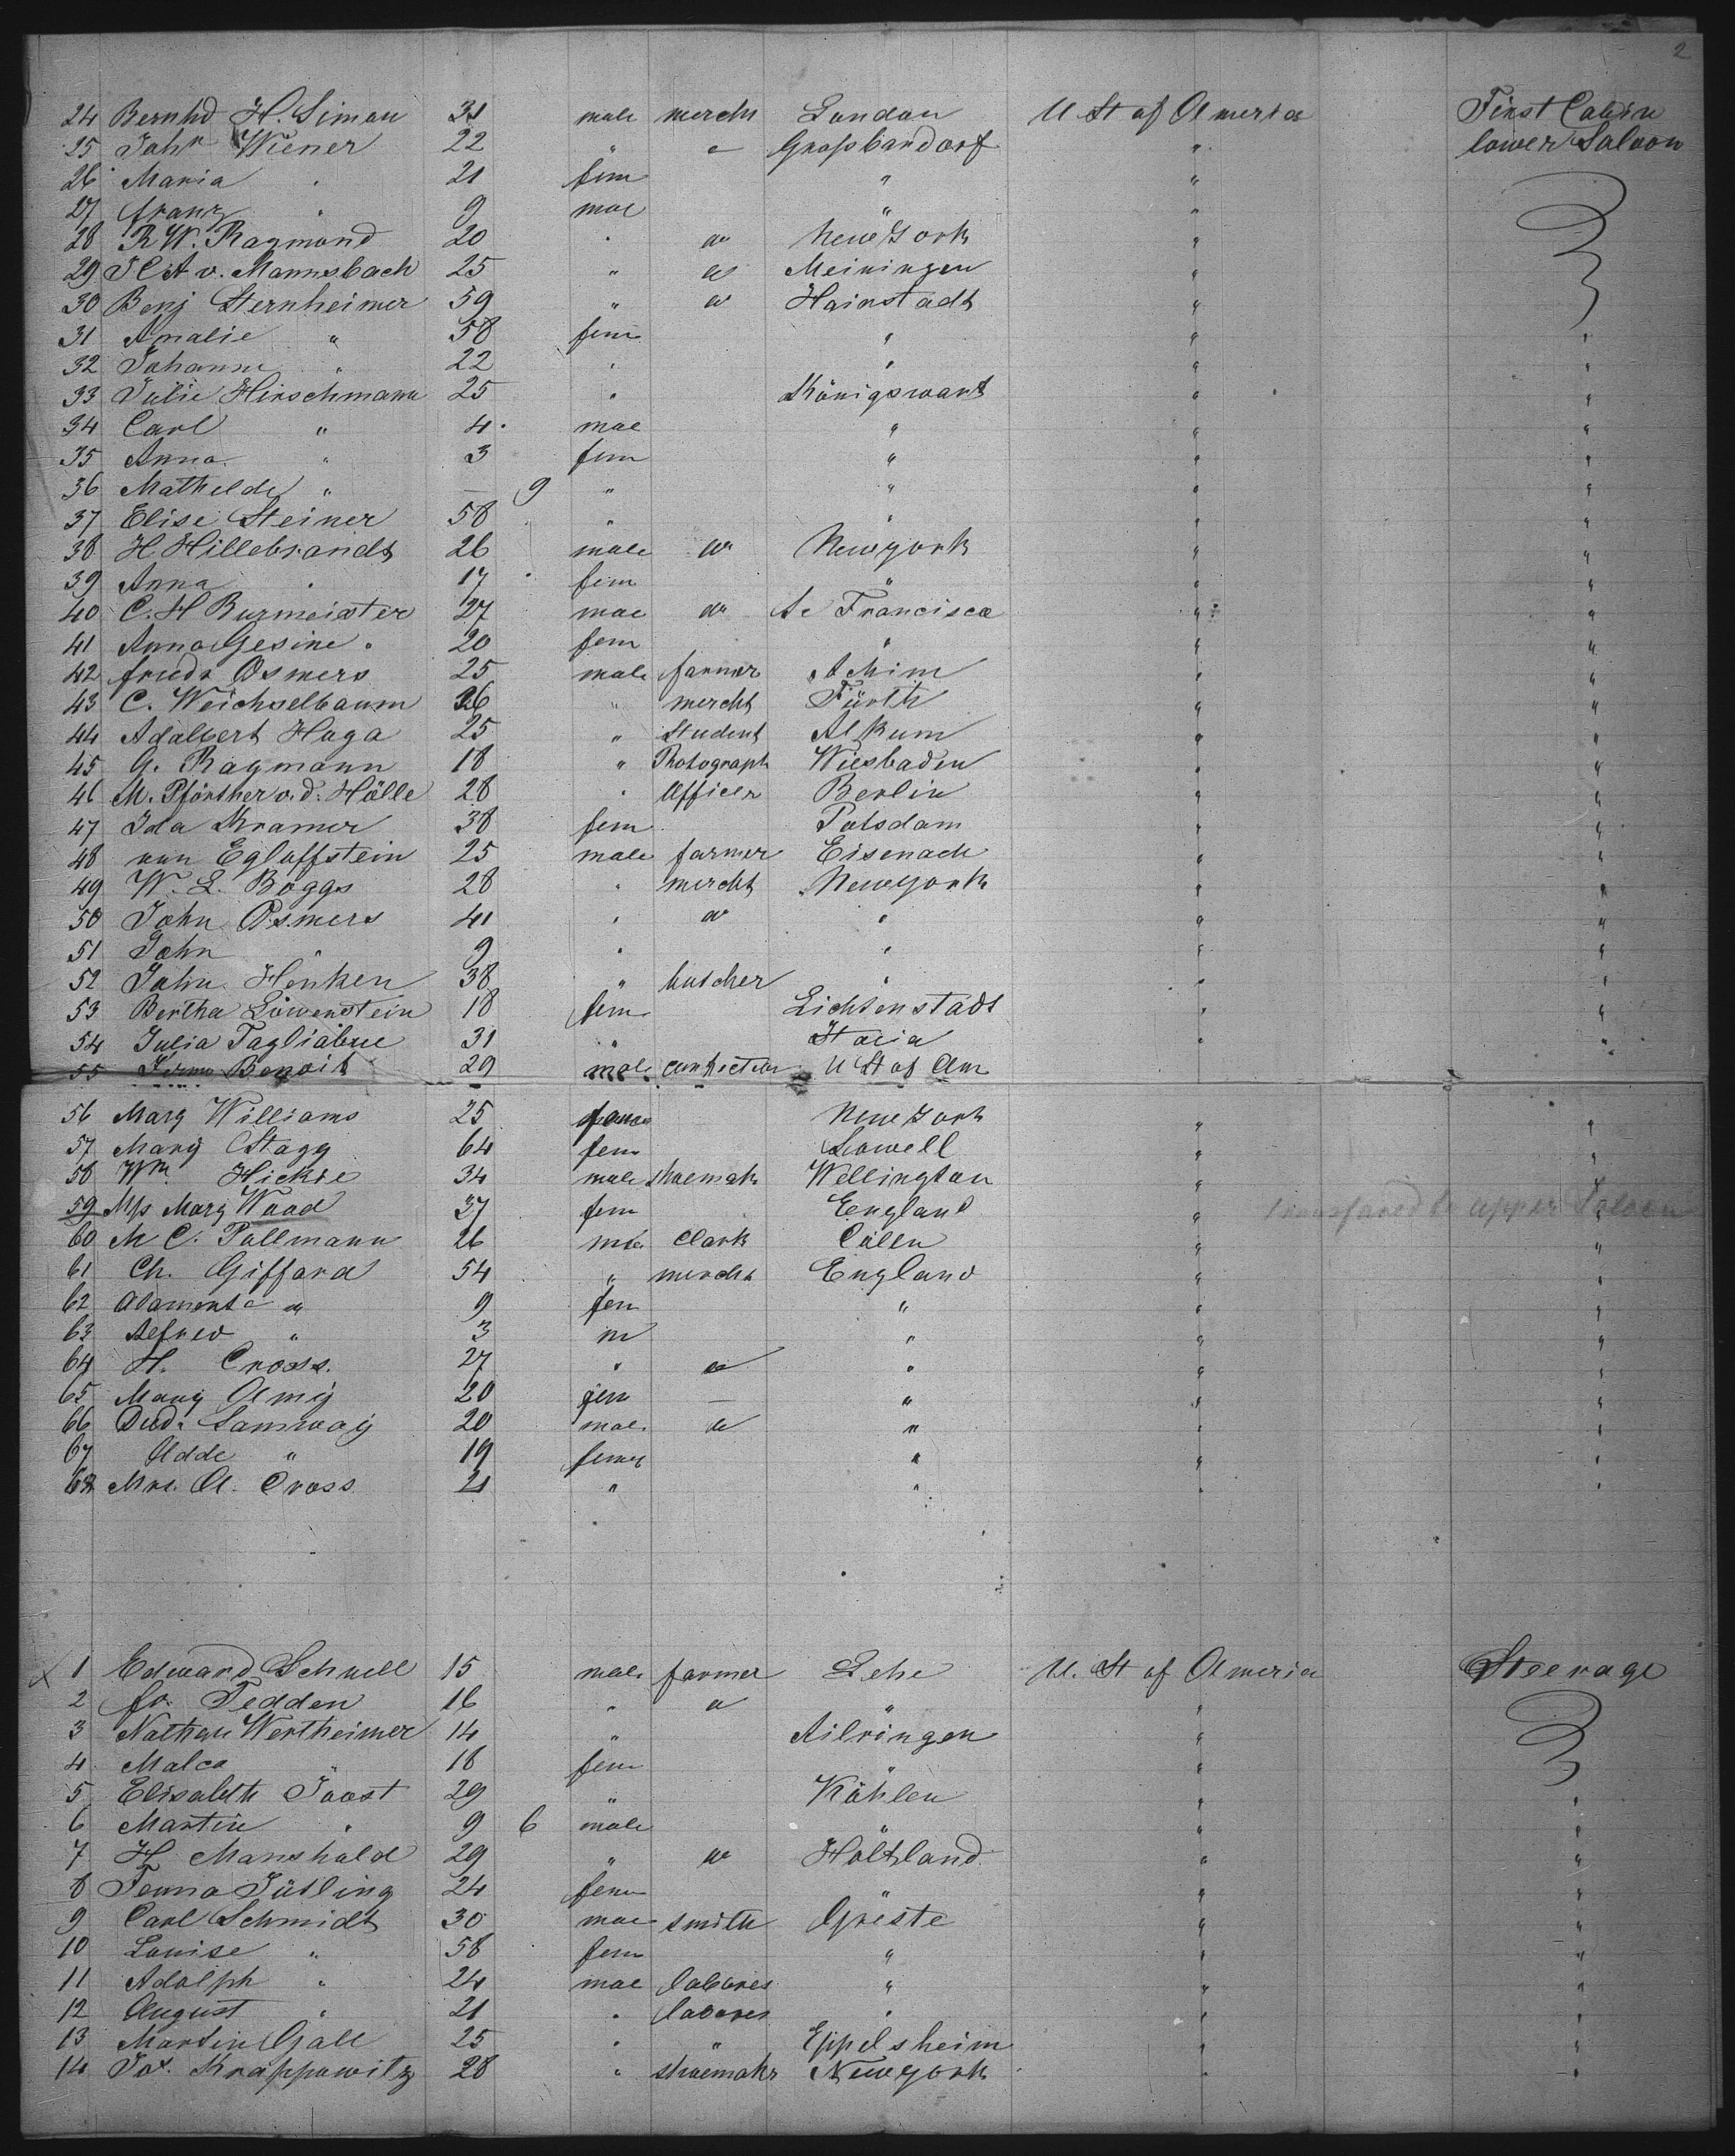 2
24 Bernhd H. Simon 31 male mercht London U St of America First Cabin
25 John Wiener 22 " " Grossbardorf " lower Saloon
26 Maria " 21 fem " "
27 Franz " 9 mal " "
28 R W. Raymond 20 " do New York "
29 J C A v. Mannsbach 25 " do Meiningen "
30 Benj Sternheimer 59 " do Hainstadt "
31 Amalie " 58 fem " " "
32 Johanne " 22 " " " "
33 Julie Hirschmann 25 " Königswart " "
34 Carl " 4 mal " " "
35 Anna " 3 fem " " "
36 Mathilde " — 9 " " " "
37 Elise Steiner 58 " " " "
38 H Hillebrandt 26 male do Newyork " "
39 Anna " 17 fem " " "
40 C. H Burmeister 27 mal do St Francisco " "
41 Anna Gesine " 20 fem " " "
42 Friedr Osmers 25 male farmer Achim " "
43 C. Weichselbaum 26 " mercht Fürth " "
44 Adalbert Haga 25 " Student " "
45 G. Ragmann 18 " Photograph Wiesbaden " "
46 M. Pförtner v. d. Hölle 28 " Officer Berlin " "
47 Ida Kramer 38 fem Potsdam " "
48 von Egloffstein 25 male farmer Eisenach " "
49 W. L. Boggs 28 " mercht Newyork " "
50 John Osmers 41 " do " " "
51 John " 9 " " " "
52 John Henken 38 " butcher " " "
53 Bertha Löwenstein 18 fem Lichtenstadt " "
54 Julia Tagliabue 31 " Italia " "
55 Benoit 29 male U St of Am
56 Mary Williams 25 New York " "
57 Mary Stagg 64 fem Lowell " "
58 Wm Hickie 34 male shoemak Wellington " "
59 Mss Mary Wood 37 fem England " transfered to upper Saloon
60 M C. Pollmann 26 mal Clark Cölln " "
61 Ch. Giffard 54 " mercht England " "
62 " 9 fem " " "
63 Alfred " 3 m " " "
64 H. Cross. 27 " do " " "
65 Mary Amy 20 fem — " " "
66 Samway 20 male do " " "
67 Adde " 19 fem " " "
68 Mrs. A. Cross 21 " " " "
X 1 Edward Schnell 15 male farmer Lehe U. St of America Steerage
2 Fr. Tedden 16 " do " "
3 Nathan Wertheimer 14 " Ailringen "
4 Malca " 18 fem " "
5 Elisabeth Joost 29 " Köhlen " "
6 Martin " 9 6 male " " "
7 H Manshold 29 " do Holtland " "
8 Fenna Jütling 24 fem " " "
9 Carl Schmidt 30 mal smith Greste " "
10 Louise " 58 fem " " "
11 Adolph " 24 mal labores " " "
12 August " 21 " labores " " "
13 Martin Gall 25 " " Eppelsheim " "
14 Jos. Krappowitz 28 " shoemakr Newyork " "